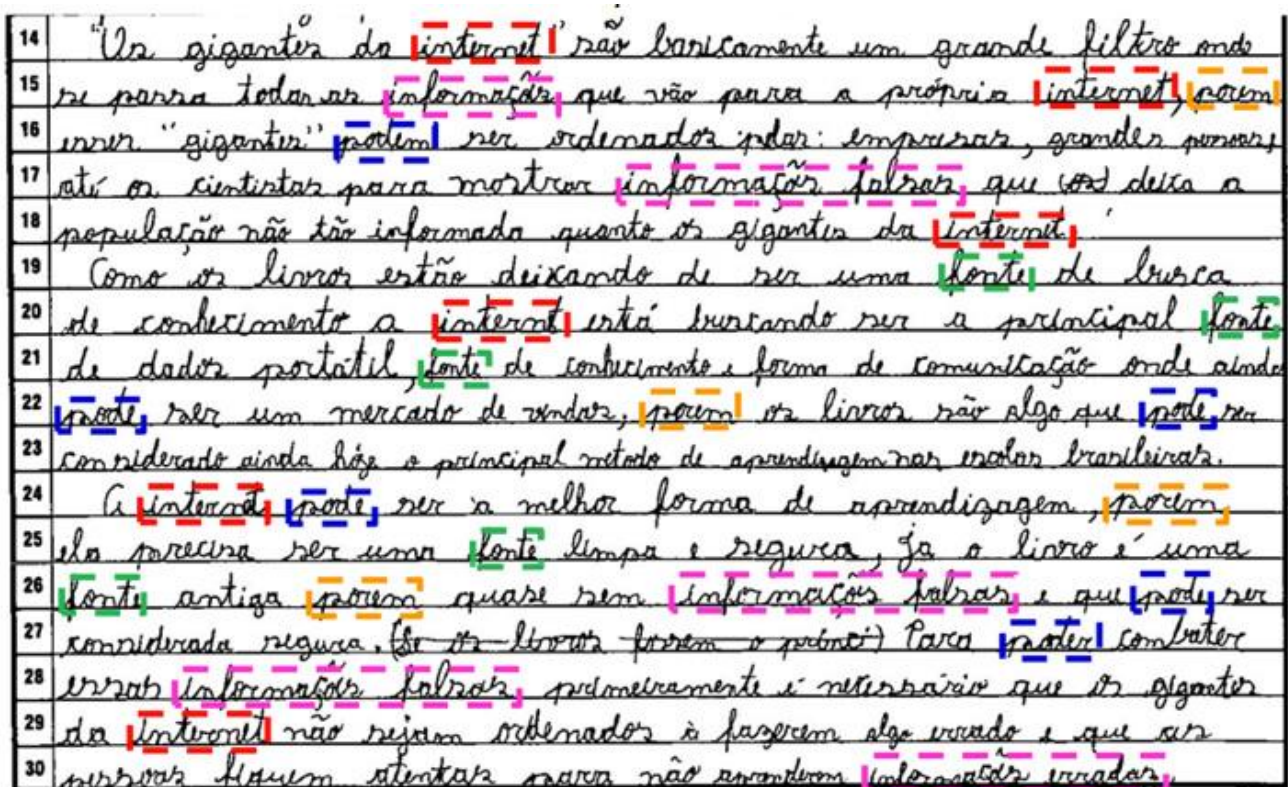 14 "Os gigantes da internet" são basicamente um grande filtro onde
15 se passa todas as informaçõs que vão para a própria internet, porem
16 esses "gigantes" podem ser ordenados pelas: empresas, grandes pessoas,
17 até os cientistas para mostrar informaçõs falsas que (os) deixa a
18 população não tão informada quanto os gigantes da internet.
19 Como os livros estão deixando de ser uma fonte de busca
20 de conhecimento a internet está buscando ser a principal fonte
21 de dados portátil, fonte de conhecimento e forma de comunicação onde ainda
22 pode ser um mercado de vendas, porem os livros são algo que pode ser
23 considerado ainda hôje o principal metodo de aprendizagem nas escolas brasileiras.
24 A internet pode ser a melhor forma de aprendizagem, porem
25 ela precisa ser uma fonte limpa e segura, ja o livro é uma
26 fonte antiga porem quase sem informaçõs falsas e que pode ser
27 considerada segura. (Se os livros fossem o princi) Para poder combater
28 essas informaçõs falsas primeiramente é necessário que os gigantes
29 da internet não sejam ordenados à fazerem algo errado e que as
30 pessoas fiquem atentas para não aprenderem informaçõs erradas.